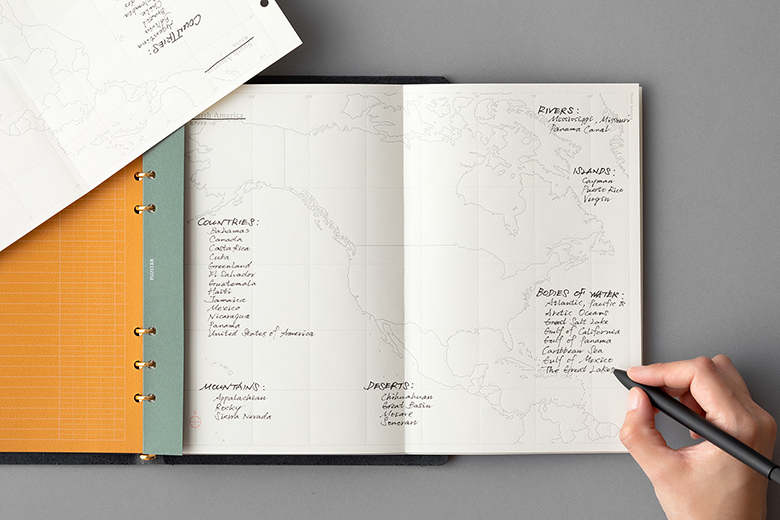 COUNTRIES:
Argentina
Bolivia
Brazil
Chile
North America
COUNTRIES:
Bahamas
Canada
Costa Rica
Cuba
Greenland
El Salvador
Guatemala
Haiti
Jamaica
Mexico
Nicaragua
Panama
United States of America
MOUNTAINS:
Appalachian
Rocky
Sierra Nevada
DESERTS:
Chihuahuan
Great Basin
Mojave
Sonoran
RIVERS:
Mississippi, Missouri
Panama Canal
ISLANDS:
Cayman
Puerto Rico
Virgin
BODIES OF WATER:
Atlantic, Pacific &
Arctic Oceans
Great Salt Lake
Gulf of California
Gulf of Panama
Caribbean Sea
Gulf of Mexico
The Great Lakes
PLOTTER